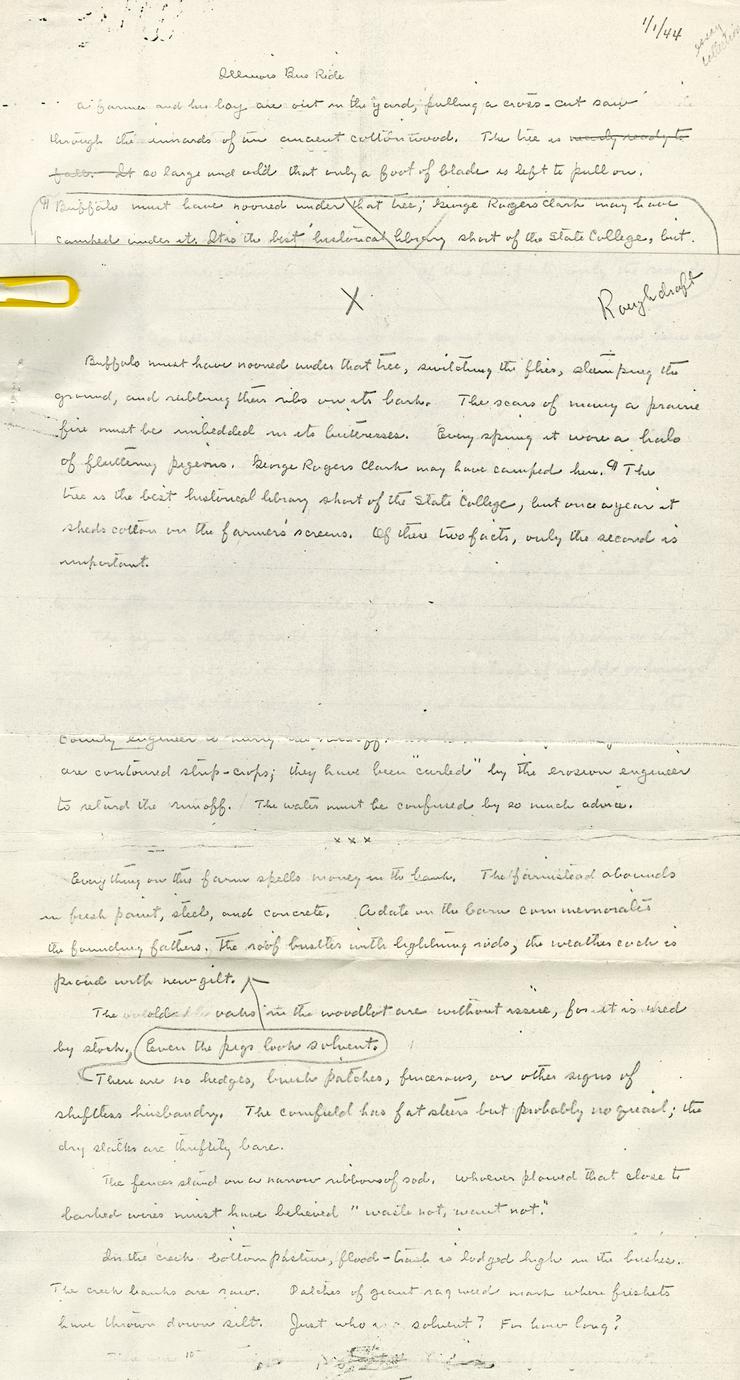 1/1/44
essay
collection
Illinois Bus Ride
A farmer and his boy are out in the yard, pulling a cross-cut saw
through the innards of an ancient cottonwood. The tree is nearly ready to
fall. It so large and old that only a foot of blade is left to pull on.
¶ Buffalo must have nooned under that tree; George Rogers Clark may have
camped under it. It is the best historical library short of the State College, but.
X
Rough draft
Buffalo must have nooned under that tree, switching the flies, stamping the
ground, and rubbing their ribs on its bark. The scars of many a prairie
fire must be imbedded in its buttresses. Every spring it wore a halo
of fluttering pigeons. George Rogers Clark may have camped here. ¶ The
tree is the best historical library short of the State College, but once a year it
sheds cotton on the farmers' screens. Of these two facts, only the second is
important.
County engineer to hurry the runoff.
are contoured strip-crops; they have been "curled" by the erosion engineer
to retard the runoff. The water must be confused by so much advice.
x x x
Everything on this farm spells money in the bank. The farmstead abounds
in fresh paint, steel, and concrete. A date on the barn commemorates
the founding fathers. The roof bristles with lightning rods, the weathercock is
proud with new gilt.
The old oaks in the woodlot are without issue, for it is used
by stock. Even the pigs look solvent.
There are no hedges, brush patches, fencerows, or other signs of
shiftless husbandry. The cornfield has fat steers but probably no quail; the
dry stalks are thriftily bare.
The fences stand on a narrow ribbons of sod. Whoever plowed that close to
barbed wires must have believed "waste not, want not."
In the creek bottom pasture, flood-trash is lodged high in the bushes.
The creek banks are raw. Patches of giant ragweed mark where freshets
have thrown down silt. Just who is solvent? For how long?